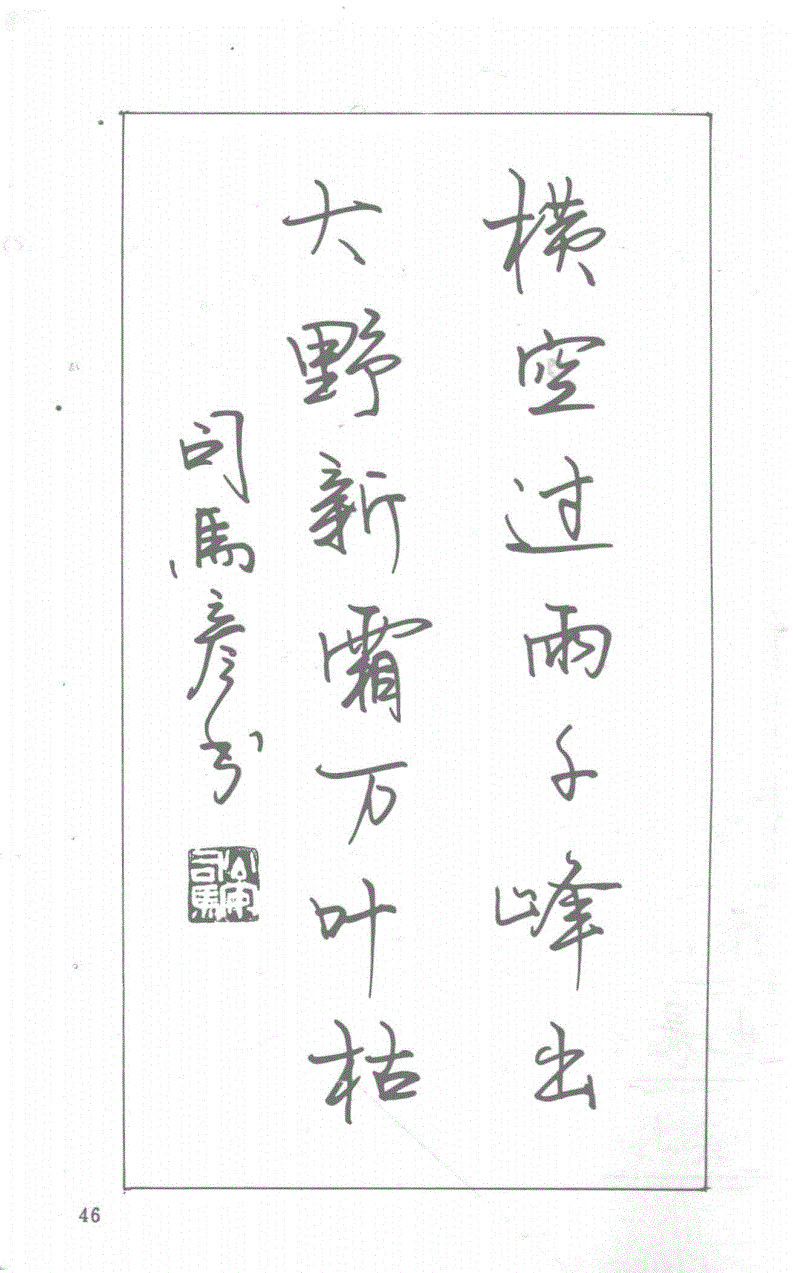 横空过雨千峰出
大野新霜万叶枯
司馬彦书
46